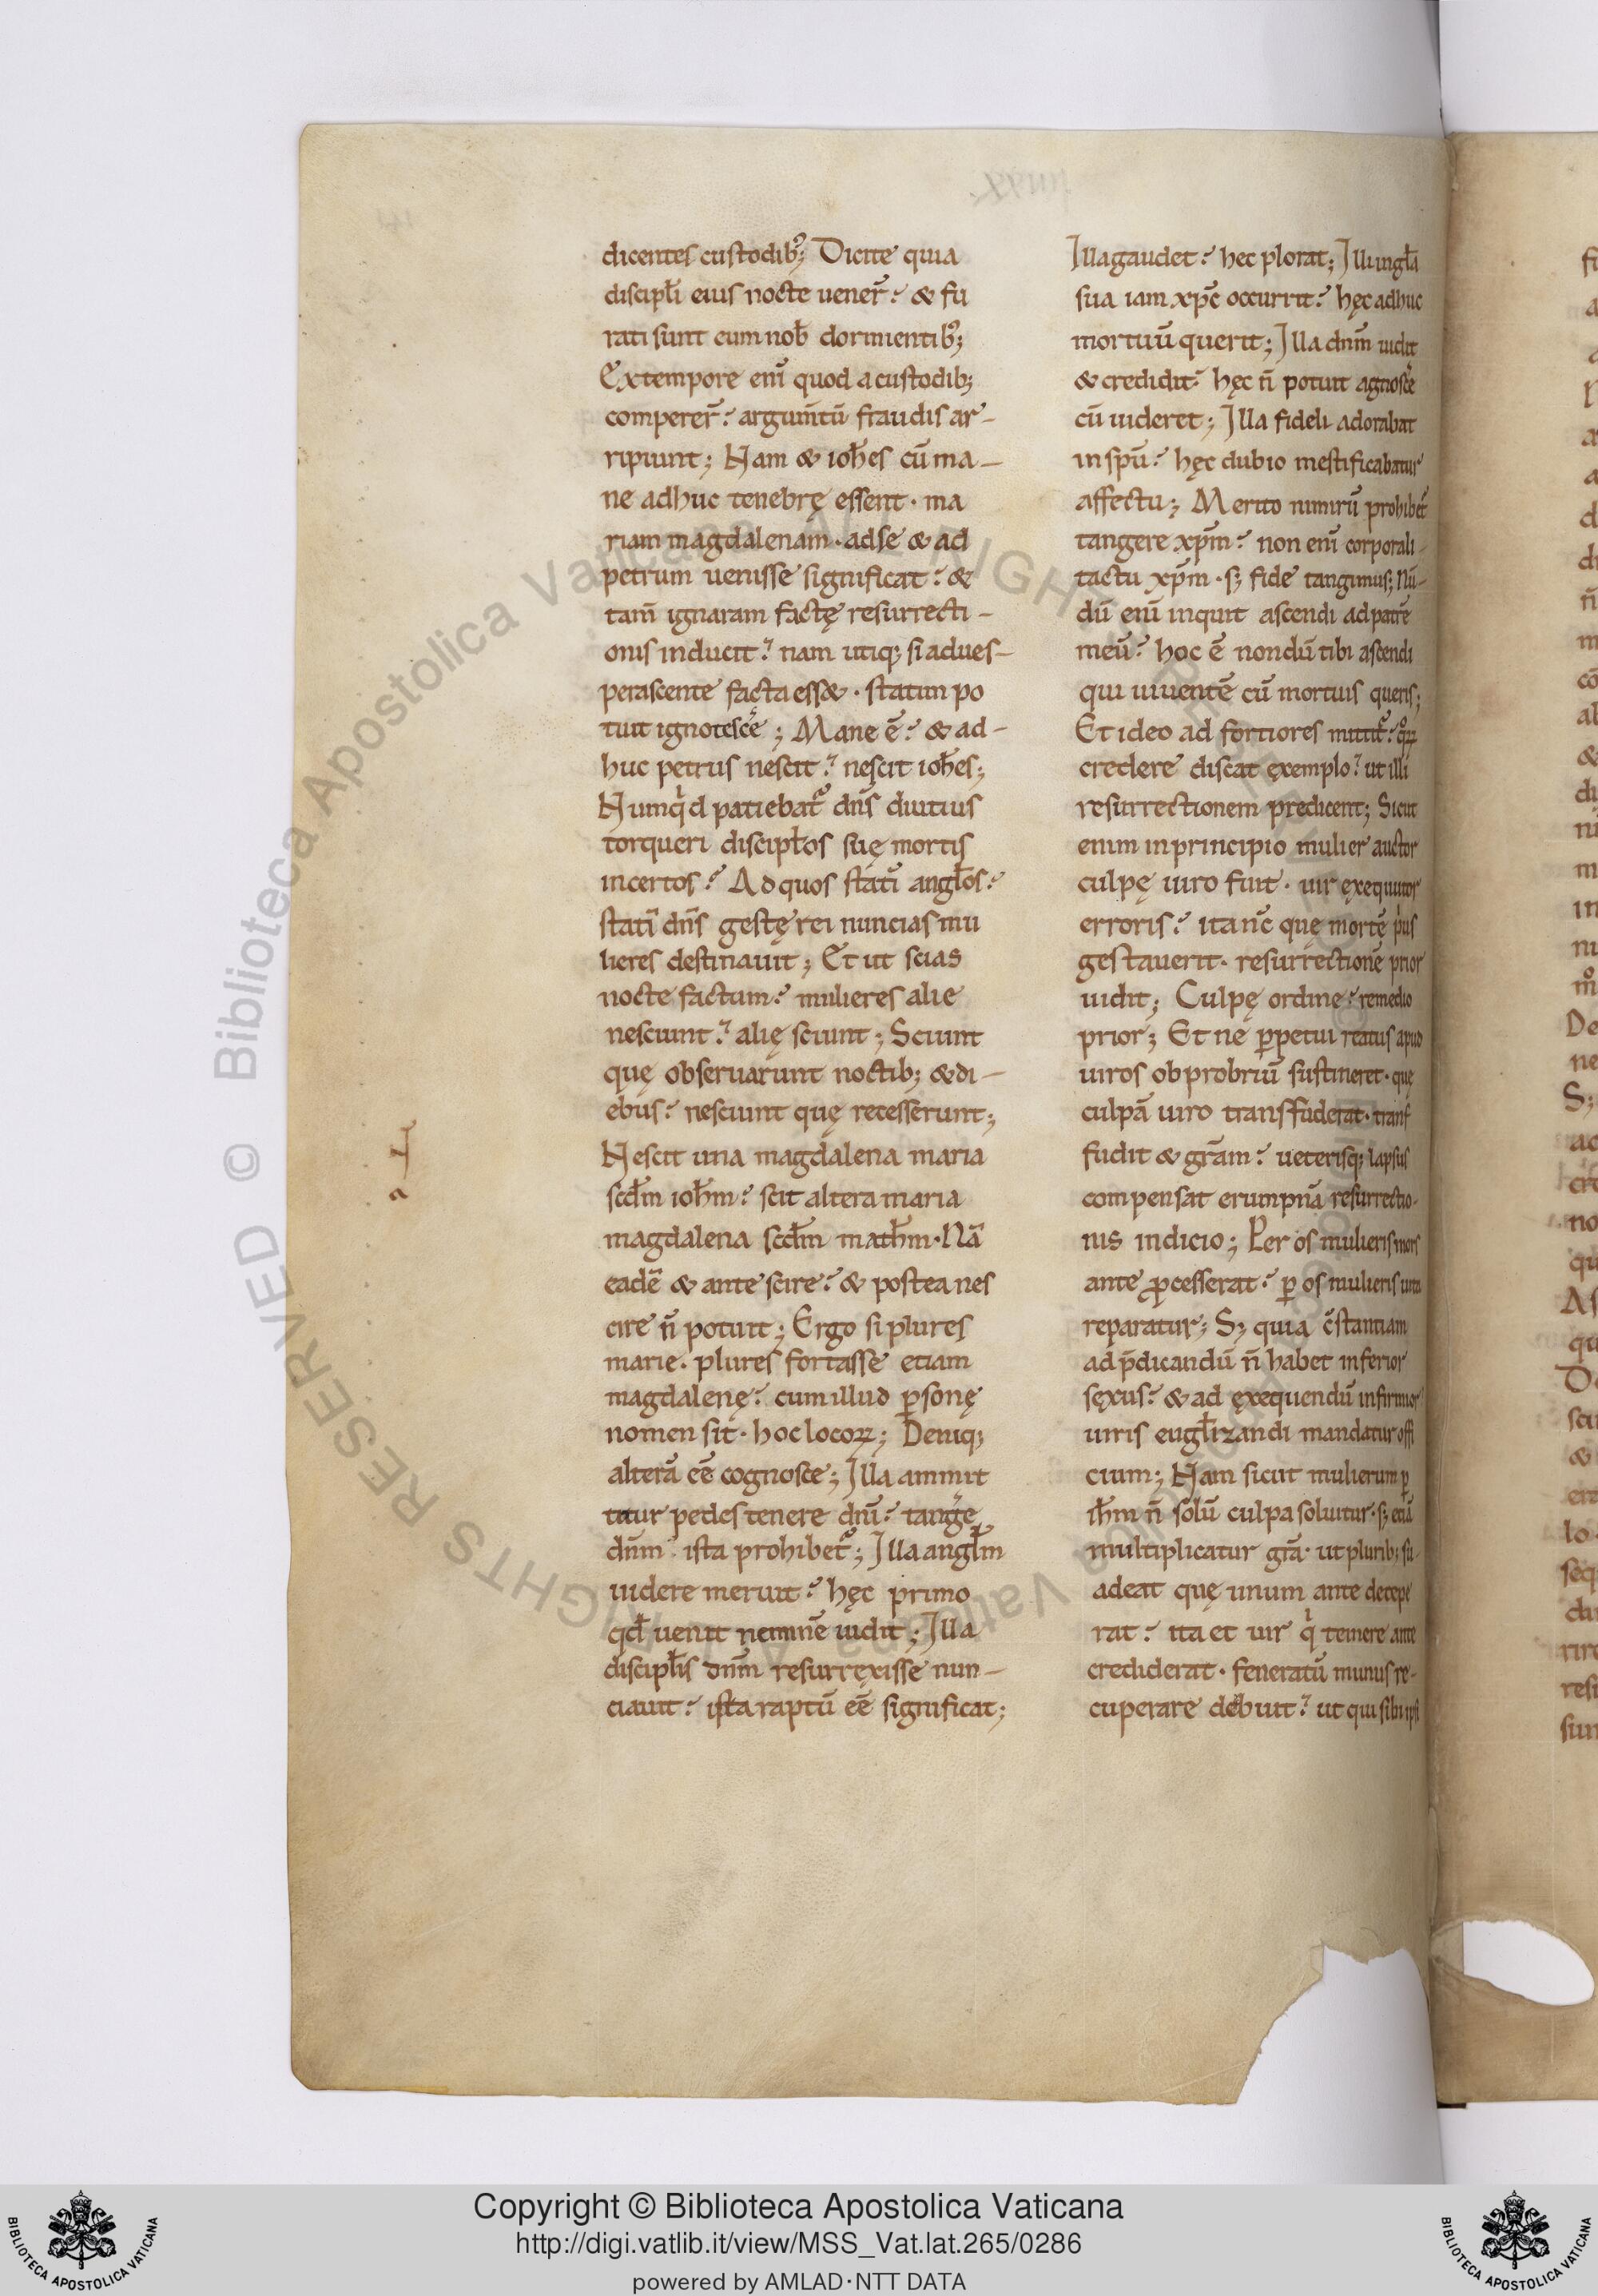 dicentes custodibꝰ; Dicite quia
discipłi eius nocte uener̄? & fu
rati sunt eum nob̄ dormientibꝰ;
Ex tempore eni̅ quod a custodib;
comperer̄? argum̅tū fraudis ar-
ripiunt; Nam & ioh̅es cū ma-
ne adhuc tenebrę essent · ma
riam magdalenam · ad se & ad
petrum uenisse significat? &
tam̅ ignaram factę resurrecti-
onis inducit? nam utiq; si adues-
perascente facta ess& · statim po
tuit ignotesce̅ ; Mane ē? & ad-
huc petrus nescit? nescit ioh̅es;
Numqͥd patiebat᷑ dn̅s diutius
torqueri discipłos suę mortis
incertos? Ad quos stati̅ angłos?
stati̅ dn̅s gestę rei nuncias mu
lieres destinauit; Et ut scias
nocte factum? mulieres alie
nesciunt? alię sciunt; Sciunt
quę obseruarunt noctib; & di-
ebus? nesciunt quę recesserunt;
Nescit una magdalena maria
scd̅m ioh̅m? scit altera maria
magdalena scd̅m math̅m · Nā
eadē & ante scire? & postea nes
cire n̅ potuit; Ergo si plures
marie · plures fortasse etiam
magdalenę? cum illud ꝑsonę
nomen sit · hoc locoꝝ; Deniq;
alterā eē cognosce; Illa ammit
titur pedes tenere dn̅i? tange̅
dn̅m · ista prohibet᷑; Illa angłm
uidere meruit? hęc primo
qd̅ uenit neminē uidit; Illa
discipłis dn̅m resurrexisse nun-
ciauit? ista raptū eē significat;
Illa gaudet? hec plorat; Illi in gła
sua iam xp̅c occurrit? hęc adhuc
mortuū querit; Illa dn̅m uidit
& credidit? hęc n̅ potuit agnosce̅
cū uideret; Illa fideli adorabat
in spū? hęc dubio mestificabatur
affectu; Merito nimirū prohibet᷑
tangere xp̅m? non eni̅ corporali-
tactu xp̅m · s; fide tangimus; Nū-
dū eni̅ inquit ascendi ad patrē
meū? hoc ē nondū tibi ascendi
qui uiuentē cū mortuis queris;
Et ideo ad fortiores mittit᷑? qͦꝝ
credere discat exemplo? ut illi
resurrectionem predicent; Sicut
enim in principio mulier auctor
culpę uiro fuit · uir exequutor
erroris? ita nc̅ quę mortē pͥus
gestauerit · resurrectionē prior
uidit; Culpę ordine? remedio
prior; Et ne ꝑpetui reatus apud
uiros obprobriū sustineret · quę
culpā uiro transfuderat · transf
fudit & gr̅am? ueterisq; lapsus
compensat erumpnā resurrectio-
nis indicio; Per os mulieris mors
ante ꝓcesserat? ꝑ os mulieris uita
reparatur; S; quia c̅stantiam
ad p̅dicandū n̅ habet inferior
sexus? & ad exequendū infirmior
uiris eugłizandi mandatur offi
cium; Nam sicut mulierum ꝑ
ih̅m n̅ solū culpa soluitur · s; etiā
multiplicatur gr̅a · ut plurib; su-
adeat quę unum ante decepe
rat? ita et uir qͥ temere ante
crediderat · feneratū munus re-
cuperare debuit? ut qui sibi ipsi
Copyright © Biblioteca Apostolica Vaticana
http://digi.vatlib.it/view/MSS_Vat.lat.265/0286
powered by AMLAD·NTT DATA
BIBLIOTECA APOSTOLICA VATICANA
BIBLIOTECA APOSTOLICA VATICANA